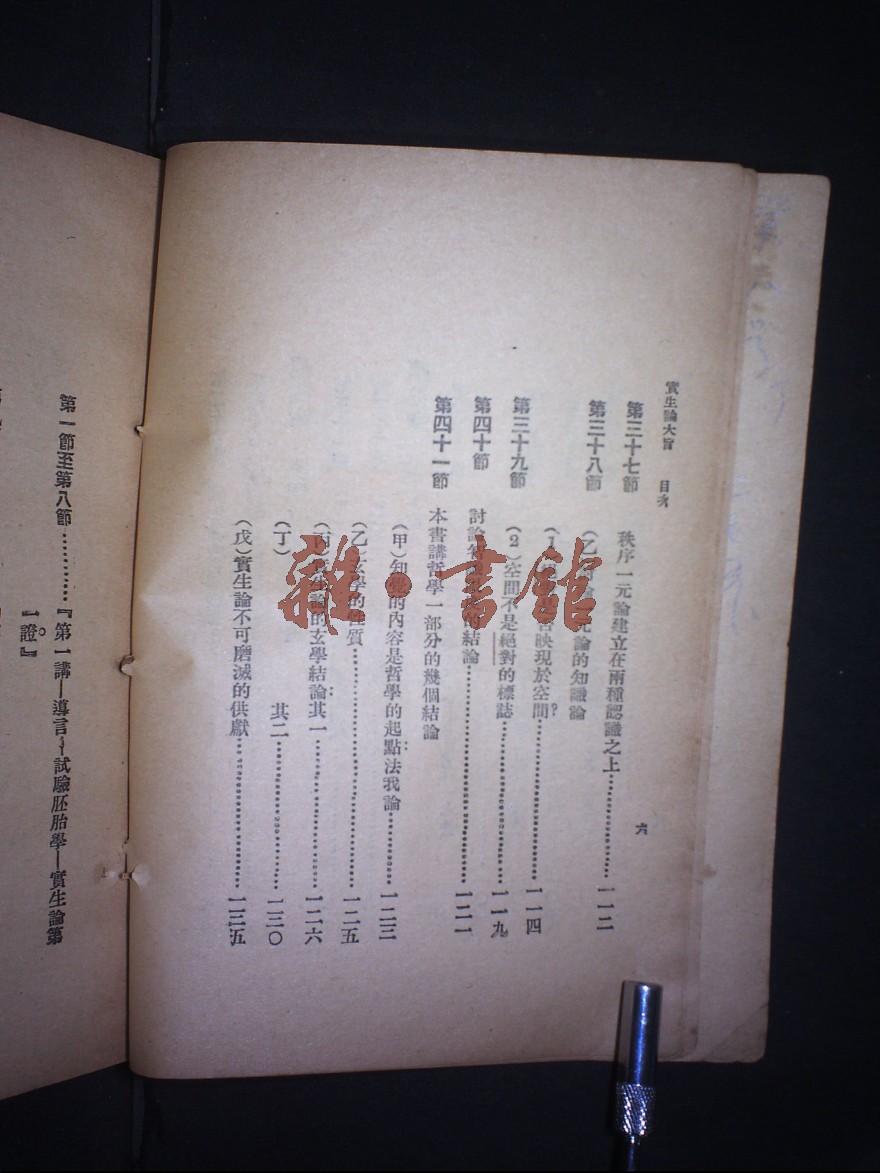 實生論大旨 目次
六
第三十七節 秩序一元論建立在兩種認識之上……………一一二
第三十八節 (乙) 論的知識論
(1) 映現於空間?……………一一四
第三十九節 (2)空間不是絕對的標誌……………一一九
第四十節 討論 的結論……………一二一
第四十一節 本書講哲學一部分的幾個結論
(甲)知覺的內容是哲學的起點法我論……………一二三
(乙)玄學的性質……………一二五
(丙)實生論的玄學結論其一……………一二六
(丁) 其二……………一三〇
(戊)實生論不可磨滅的供獻……………一三五
第一節至第八節……………『第一講—導言—試驗胚胎學—實生論第
一證』
雜·書館